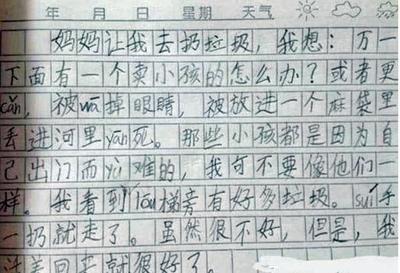 年 月 日 星期 天气
妈妈让我去扔垃圾，我想：万一
下面有一个卖小孩的怎么办？或者更
cǎn，被wā掉眼睛，被放进一个麻袋里
丢进河里yān死。那些小孩都是因为自
己出门而yù难的，我可不要像他们一
样。我看到lóu梯旁有好多垃圾。suí手
一扔就走了。虽然很不好，但是，我
回来就很好了。